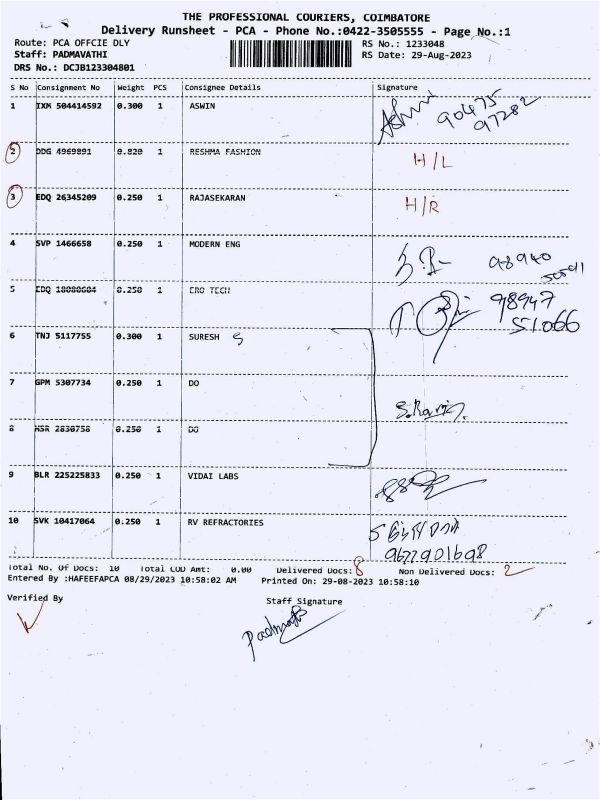 THE PROFESSIONAL COURIERS, COIMBATORE
Delivery Runsheet - PCA - Phone No.:0422-3505555 - Page No.:1
Route: PCA OFFCIE DLY
RS No.: 1233048
Staff: PADMAVATHI
RS Date: 29-Aug-2023
DRS No.: DCJB123304801
S No Consignment No Weight PCS Consignee Details Signature
1 IXM 504414592 0.300 1 ASWIN Ashwi 90475 97282
2 DDG 4969891 0.820 1 RESHMA FASHION H/L
3 EDQ 26345209 0.250 1 RAJASEKARAN H/R
4 SVP 1466658 0.250 1 MODERN ENG 98940
5 EDQ 18080604 0.250 1 ERO TECH 98947 51066
6 TNJ 5117755 0.300 1 SURESH S
7 GPM 5307734 0.250 1 DO S.Ravi
8 HSR 2830758 0.250 1 DO
9 BLR 225225833 0.250 1 VIDAI LABS
10 SVK 10417064 0.250 1 RV REFRACTORIES 9677901698
Total No. Of Docs: 10 Total COD Amt: 0.00 Delivered Docs: 8 Non Delivered Docs: 2
Entered By :HAFEEFAPCA 08/29/2023 10:58:02 AM Printed On: 29-08-2023 10:58:10
Verified By Staff Signature